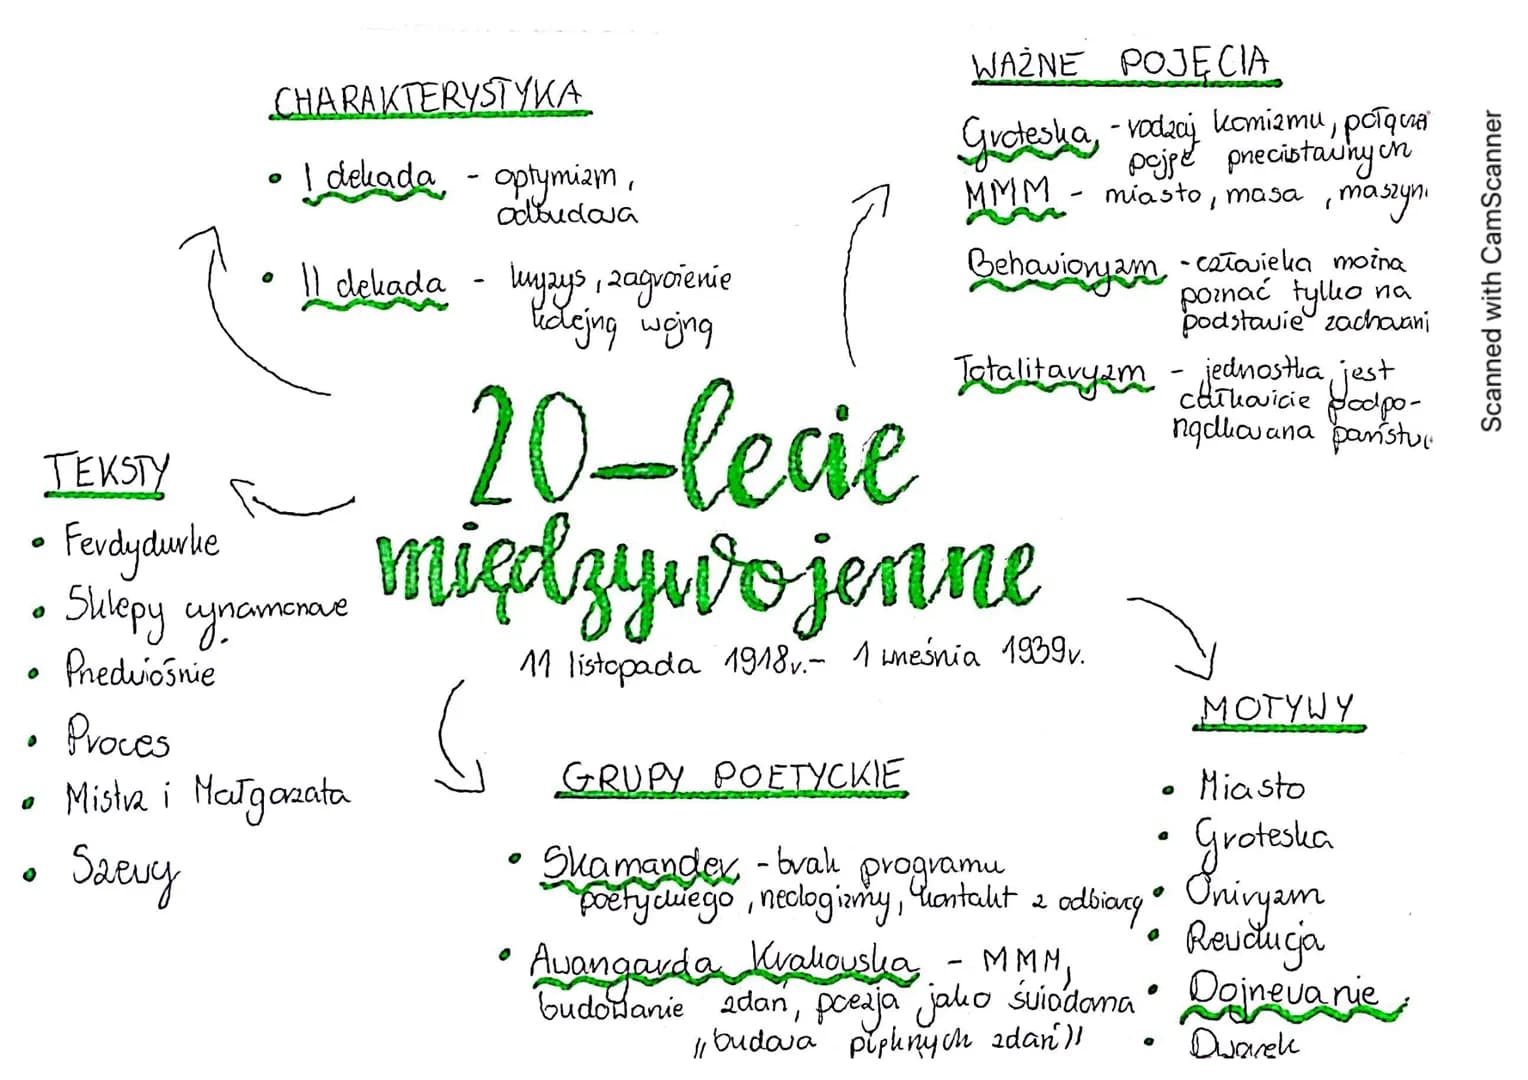 CHARAKTERYSTYKA
• I dekada - optymizm,
odbudowa
• II dekada - kryzys, zagrożenie
kolejną wojną
WAŻNE POJĘCIA
Groteska - rodzaj komizmu, połącza
pojęć przecistawnych
MMM - miasto, masa, maszyn
Behawioryzm - człowieka można
poznać tylko na
podstawie zachowani
Totalitaryzm - jednostka jest
całkowicie podpo-
rządkowana państw
20-lecie
międzywojenne
11 listopada 1918r.- 1 września 1939r.
TEKSTY
• Ferdydurke
• Sklepy cynamonowe
• Przedwiośnie
• Proces
• Mistrz i Małgorzata
• Szewcy
GRUPY POETYCKIE
• Skamander - brak programu
poetyckiego, neologizmy, kontakt z odbiorcą
• Awangarda Krakowska - MMM,
budowanie zdań, poezja jako świadoma
„budowa pięknych zdań"
MOTYWY
• Miasto
• Groteska
• Oniryzm
• Rewolucja
• Dojrzewanie
• Dworek
Scanned with CamScanner